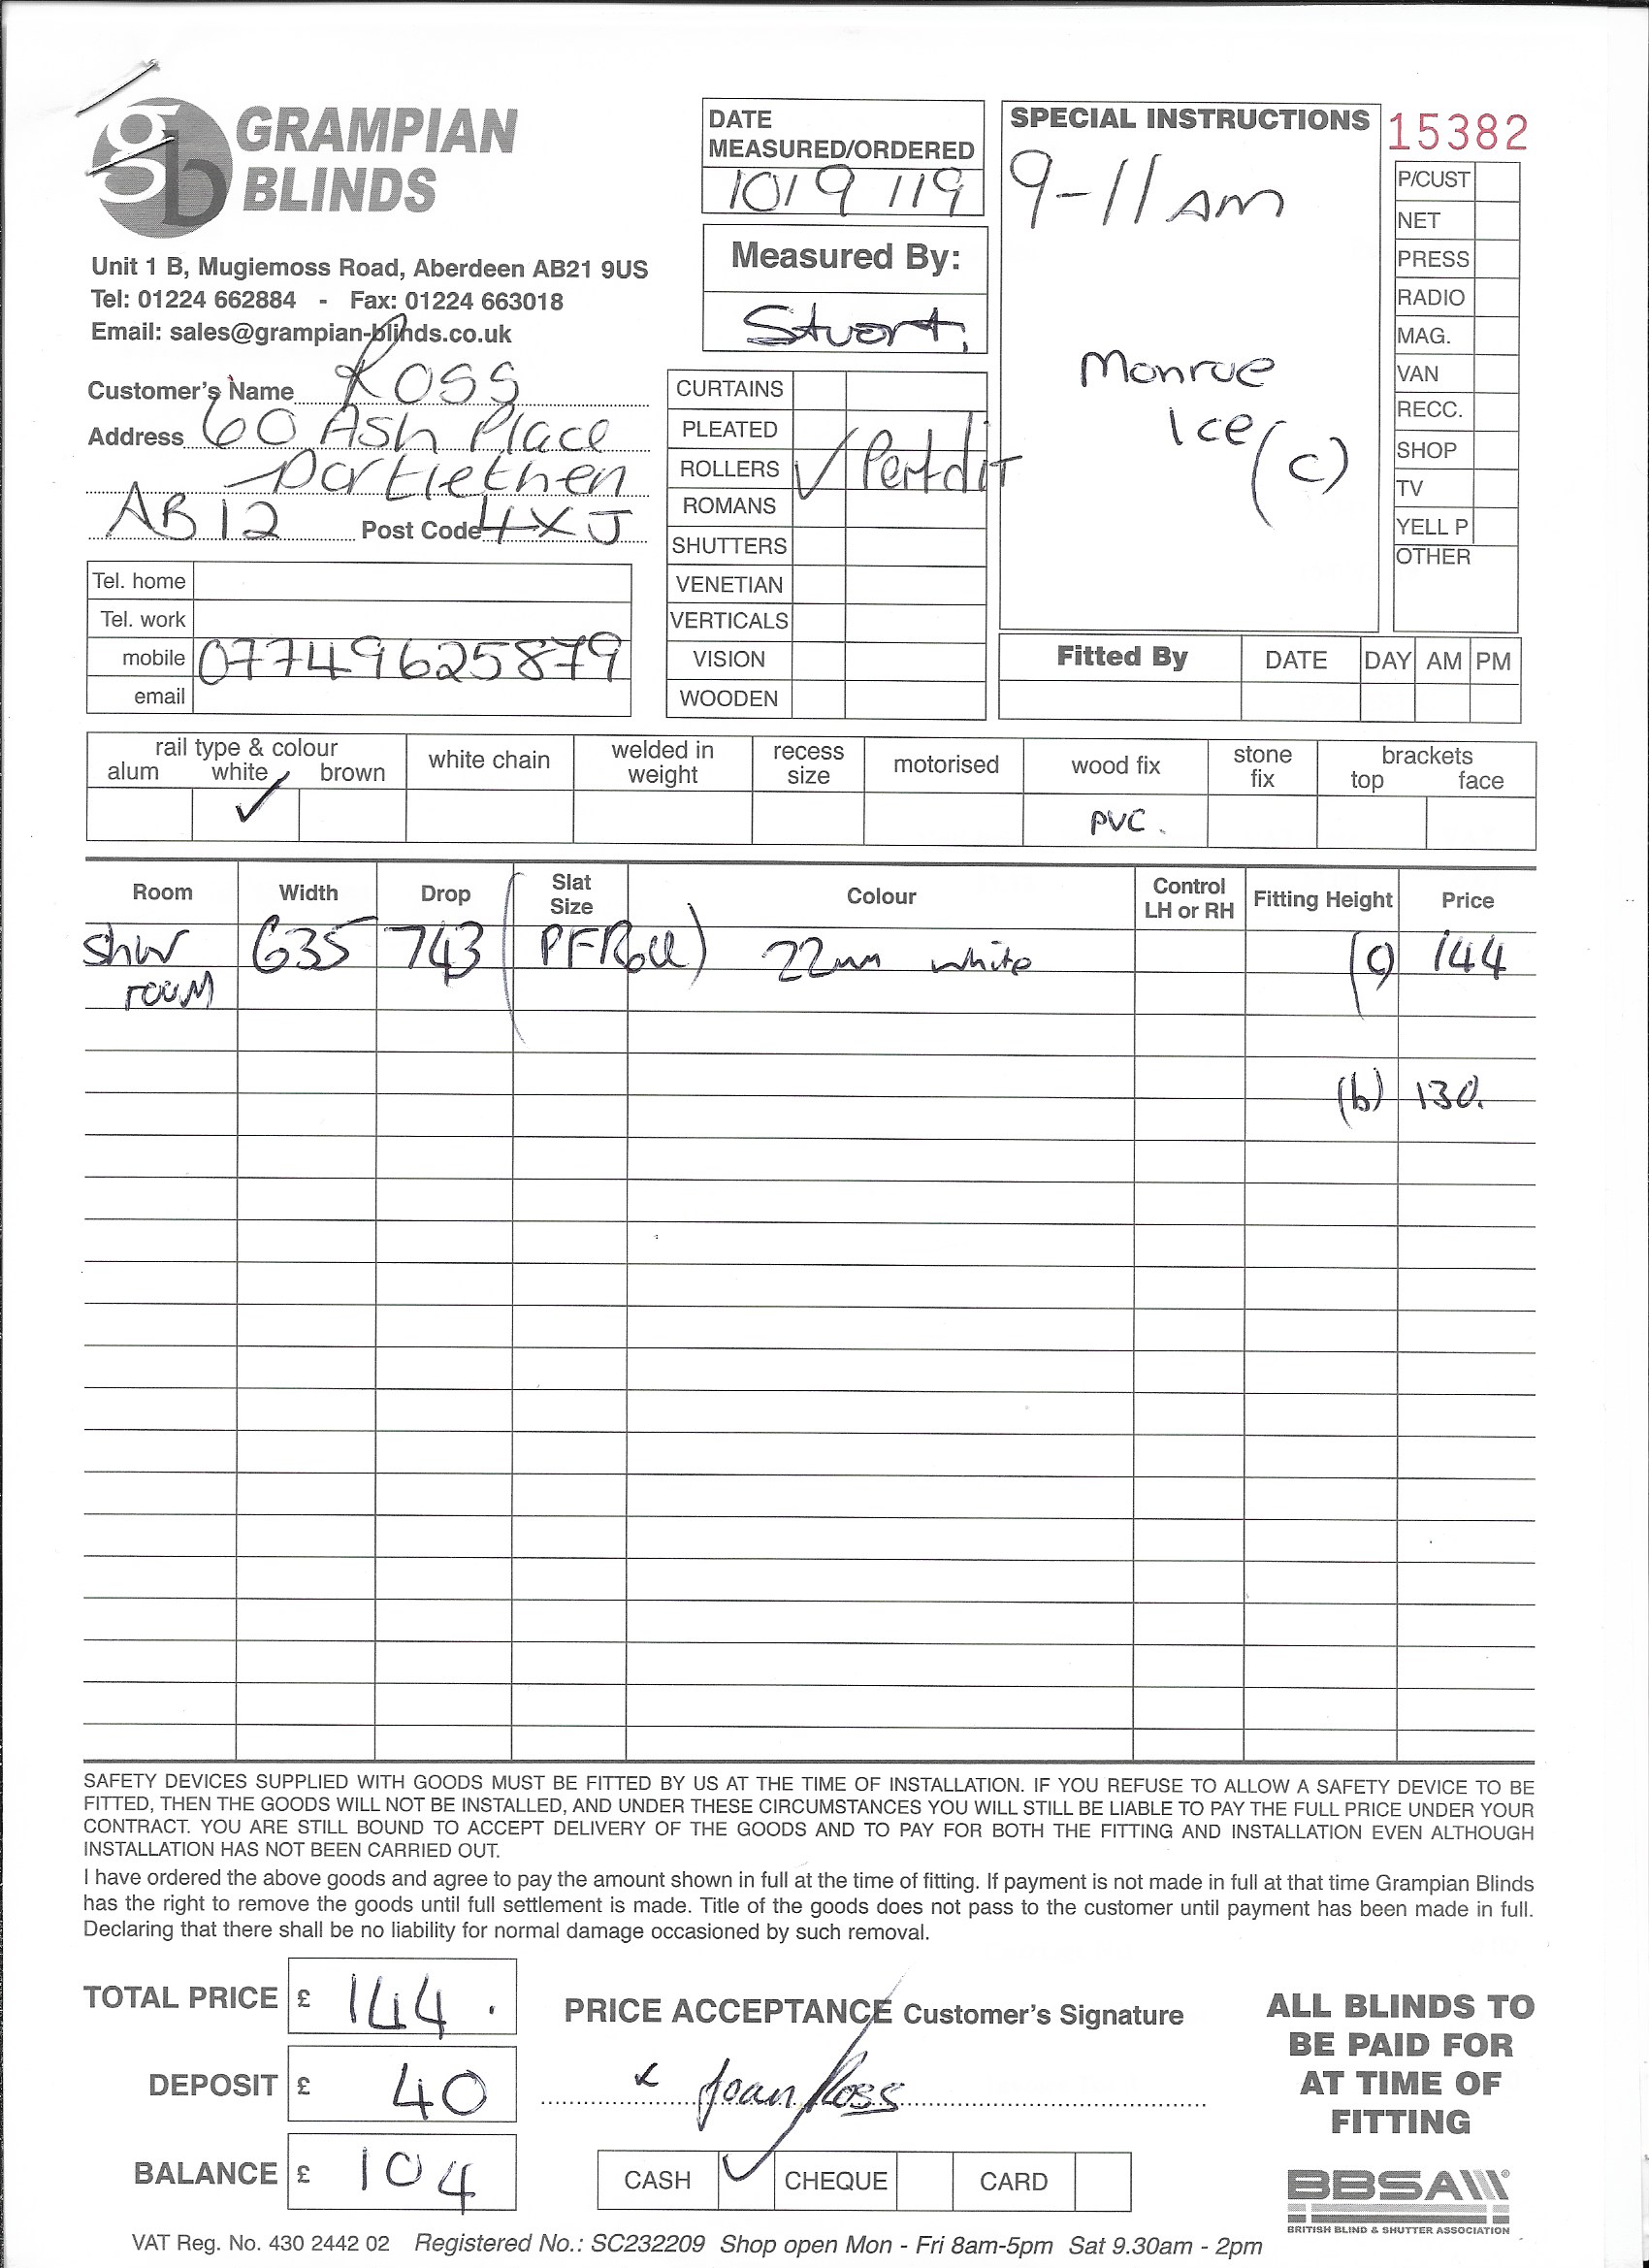 gb GRAMPIAN
BLINDS
Unit 1 B, Mugiemoss Road, Aberdeen AB21 9US
Tel: 01224 662884 - Fax: 01224 663018
Email: sales@grampian-blinds.co.uk
Customer's Name Ross
Address 60 Ash Place
Portlethen
AB12 Post Code 4XJ
Tel. home
Tel. work
mobile 07749625879
email
DATE
MEASURED/ORDERED
10/9/19
Measured By:
Stuart.
CURTAINS
PLEATED
ROLLERS ✓ Perfdit
ROMANS
SHUTTERS
VENETIAN
VERTICALS
VISION
WOODEN
SPECIAL INSTRUCTIONS
9-11 AM
Monroe
Ice (C)
15382
P/CUST
NET
PRESS
RADIO
MAG.
VAN
RECC.
SHOP
TV
YELL P
OTHER
Fitted By DATE DAY AM PM
rail type & colour
alum white brown
✓
white chain
welded in
weight
recess
size
motorised
wood fix
PVC.
stone
fix
brackets
top face
Room Width Drop Slat Size Colour Control LH or RH Fitting Height Price
shw 635 743 (PFRoll) 22mm white (c) 144
room
(b) 130.
SAFETY DEVICES SUPPLIED WITH GOODS MUST BE FITTED BY US AT THE TIME OF INSTALLATION. IF YOU REFUSE TO ALLOW A SAFETY DEVICE TO BE
FITTED, THEN THE GOODS WILL NOT BE INSTALLED, AND UNDER THESE CIRCUMSTANCES YOU WILL STILL BE LIABLE TO PAY THE FULL PRICE UNDER YOUR
CONTRACT. YOU ARE STILL BOUND TO ACCEPT DELIVERY OF THE GOODS AND TO PAY FOR BOTH THE FITTING AND INSTALLATION EVEN ALTHOUGH
INSTALLATION HAS NOT BEEN CARRIED OUT.
I have ordered the above goods and agree to pay the amount shown in full at the time of fitting. If payment is not made in full at that time Grampian Blinds
has the right to remove the goods until full settlement is made. Title of the goods does not pass to the customer until payment has been made in full.
Declaring that there shall be no liability for normal damage occasioned by such removal.
TOTAL PRICE £ 144.
DEPOSIT £ 40
BALANCE £ 104
PRICE ACCEPTANCE Customer's Signature
x Joan Ross
CASH ✓ CHEQUE CARD
ALL BLINDS TO
BE PAID FOR
AT TIME OF
FITTING
BBSA
BRITISH BLIND & SHUTTER ASSOCIATION
VAT Reg. No. 430 2442 02 Registered No.: SC232209 Shop open Mon - Fri 8am-5pm Sat 9.30am - 2pm